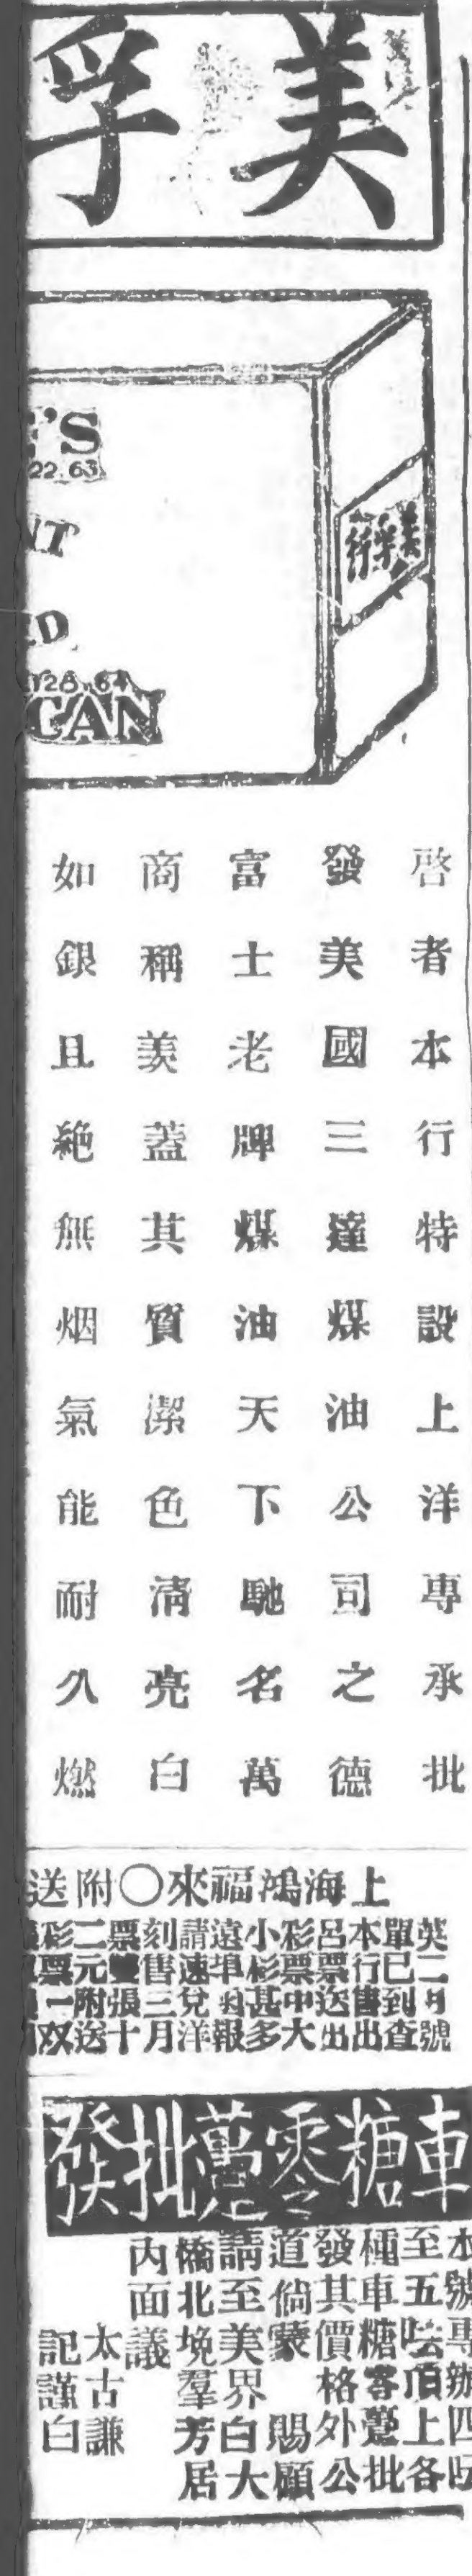 美孚
'S
22.63
NT
D
128.64
CAN
美孚行
啓者本行特設上洋專承批
發美國三達煤油公司之德
富士老牌煤油天下馳名萬
商稱羡蓋其質潔色清亮白
如銀且絶無烟氣能耐久燃
上海鴻福來〇附送
英二月號
單已到查
本行售出
呂票送出
彩票中大
小彩甚多
遠埠另報
請速兌洋
刻售三月
票雙張十
二元附送
彩票一双
車糖零躉批發
本號專辦四
至五呍頂上各
種車糖零躉批
發其價格外公
道倘蒙 賜顧
請至美界白大
橋北堍羣芳居
內面議
太古謙
記謹白